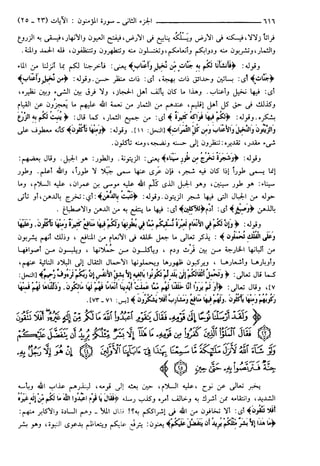 ٦١٦ الجزء الثاني - سورة المؤمنون: الآيات (٢٣ - ٢٥)
فراتًا زلالا، فيسكنه في الأرض ويسلكه ينابيع في الأرض، فيفتح العيون والأنهار، فيسقي به الزروع
والثمار، وتشربون منه ودوابكم وأنعامكم، وتغتسلون منه وتتطهرون وتتنظفون، فله الحمد والمنة.
وقوله: ﴿فَأَنشَأْنَا لَكُم بِهِ جَنَّاتٍ مِّن نَّخِيلٍ وَأَعْنَابٍ﴾ يعني: فأخرجنا لكم بما أنزلنا من الماء
﴿جَنَّاتٍ﴾ أي: بساتين وحدائق ذات بهجة، أي: ذات منظر حسن. وقوله: ﴿مِّن نَّخِيلٍ وَأَعْنَابٍ﴾
أي: فيها نخيل وأعناب. وهذا ما كان يألف أهل الحجاز، ولا فرق بين الشيء وبين نظيره،
وكذلك في حق كل أهل إقليم، عندهم من الثمار من نعمة الله عليهم ما يعجزون عن القيام
بشكره. وقوله: ﴿لَّكُمْ فِيهَا فَوَاكِهُ كَثِيرَةٌ﴾ أي: من جميع الثمار، كما قال: ﴿يُنبِتُ لَكُم بِهِ الزَّرْعَ
وَالزَّيْتُونَ وَالنَّخِيلَ وَالْأَعْنَابَ وَمِن كُلِّ الثَّمَرَاتِ﴾ [النحل: ١١]. وقوله: ﴿وَمِنْهَا تَأْكُلُونَ﴾ كأنه معطوف على
شيء مقدر، تقديره: تنظرون إلى حسنه ونضجه، ومنه تأكلون.
وقوله: ﴿وَشَجَرَةً تَخْرُجُ مِن طُورِ سَيْنَاءَ﴾ يعني: الزيتونة. والطور: هو الجبل. وقال بعضهم:
إنما يسمى طورًا إذا كان فيه شجر، فإن عري عنها سمي جبلا لا طورا، والله أعلم. وطور
سيناء: هو طور سينين، وهو الجبل الذي كلّم الله عليه موسى بن عمران، عليه السلام، وما
حوله من الجبال التي فيها شجر الزيتون. وقوله: ﴿تَنبُتُ بِالدُّهْنِ﴾
﴿وَصِبْغٍ﴾ أي: أدم ﴿لِّلْآكِلِينَ﴾ أي: فيها ما ينتفع به من الدهن والاصطباغ.
وقوله: ﴿وَإِنَّ لَكُمْ فِي الْأَنْعَامِ لَعِبْرَةً نُّسْقِيكُم مِّمَّا فِي بُطُونِهَا وَلَكُمْ فِيهَا مَنَافِعُ كَثِيرَةٌ وَمِنْهَا تَأْكُلُونَ. وَعَلَيْهَا
وَعَلَى الْفُلْكِ تُحْمَلُونَ﴾: يذكر تعالى ما جعل لخلقه في الأنعام من المنافع، وذلك أنهم يشربون
من ألبانها الخارجة من بين فرث ودم، ويأكلون من حملانها، ويلبسون من أصوافها
وأوبارها وأشعارها، ويركبون ظهورها ويحملونها الأحمال الثقال إلى البلاد النائية عنهم،
كما قال تعالى: ﴿وَتَحْمِلُ أَثْقَالَكُمْ إِلَىٰ بَلَدٍ لَّمْ تَكُونُوا بَالِغِيهِ إِلَّا بِشِقِّ الْأَنفُسِ إِنَّ رَبَّكُمْ لَرَءُوفٌ رَّحِيمٌ﴾ [النحل:
٧]، وقال تعالى: ﴿أَوَلَمْ يَرَوْا أَنَّا خَلَقْنَا لَهُم مِّمَّا عَمِلَتْ أَيْدِينَا أَنْعَامًا فَهُمْ لَهَا مَالِكُونَ. وَذَلَّلْنَاهَا لَهُمْ فَمِنْهَا
رَكُوبُهُمْ وَمِنْهَا يَأْكُلُونَ. وَلَهُمْ فِيهَا مَنَافِعُ وَمَشَارِبُ أَفَلَا يَشْكُرُونَ﴾ [يس: ٧١ - ٧٣].
﴿وَلَقَدْ أَرْسَلْنَا نُوحًا إِلَىٰ قَوْمِهِ فَقَالَ يَا قَوْمِ اعْبُدُوا اللَّهَ مَا لَكُم مِّنْ إِلَٰهٍ غَيْرُهُ أَفَلَا تَتَّقُونَ
فَقَالَ الْمَلَأُ الَّذِينَ كَفَرُوا مِن قَوْمِهِ مَا هَٰذَا إِلَّا بَشَرٌ مِّثْلُكُمْ يُرِيدُ أَن يَتَفَضَّلَ عَلَيْكُمْ
وَلَوْ شَاءَ اللَّهُ لَأَنزَلَ مَلَائِكَةً مَّا سَمِعْنَا بِهَٰذَا فِي آبَائِنَا الْأَوَّلِينَ إِنْ هُوَ إِلَّا رَجُلٌ بِهِ
جِنَّةٌ فَتَرَبَّصُوا بِهِ حَتَّىٰ حِينٍ﴾
يخبر تعالى عن نوح، عليه السلام، حين بعثه إلى قومه، لينذرهم عذاب الله وبأسه
الشديد، وانتقامه ممن أشرك به وخالف أمره وكذب رسله ﴿فَقَالَ يَا قَوْمِ اعْبُدُوا اللَّهَ مَا لَكُم مِّنْ إِلَٰهٍ غَيْرُهُ
أَفَلَا تَتَّقُونَ﴾ أي: ألا تخافون من الله في إشراككم به؟! فقال الملأ - وهم السادة والأكابر منهم:
﴿مَا هَٰذَا إِلَّا بَشَرٌ مِّثْلُكُمْ يُرِيدُ أَن يَتَفَضَّلَ عَلَيْكُمْ﴾ يعنون: يترفع عليكم ويتعاظم بدعوى النبوة، وهو بشر